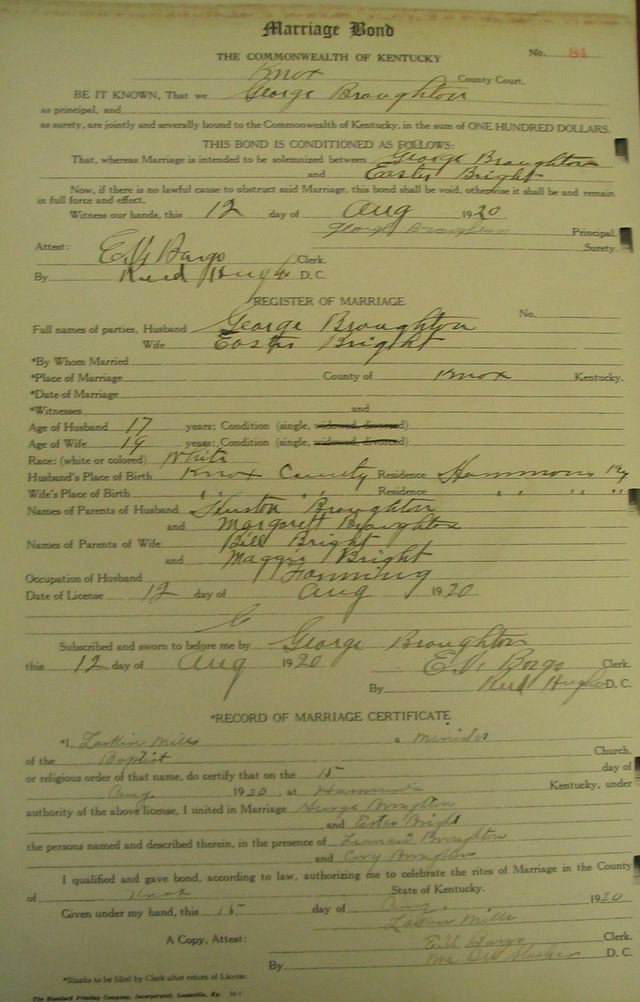 Marriage Bond
THE COMMONWEALTH OF KENTUCKY
No. 84
Knox County Court.
BE IT KNOWN, That we George Broughton
as principal, and
as surety, are jointly and severally bound to the Commonwealth of Kentucky, in the sum of ONE HUNDRED DOLLARS.
THIS BOND IS CONDITIONED AS FOLLOWS:
That, whereas Marriage is intended to be solemnized between George Broughton
and Easter Bright
Now, if there is no lawful cause to obstruct said Marriage, this bond shall be void, otherwise it shall be and remain
in full force and effect.
Witness our hands, this 12 day of Aug 1920
George Broughton Principal.
Surety.
Attest: E.V. Bargo Clerk.
By Reed Hughs D. C.
REGISTER OF MARRIAGE
No.
Full names of parties, Husband George Broughton
Wife Easter Bright
*By Whom Married
*Place of Marriage County of Knox Kentucky.
*Date of Marriage
*Witnesses and
Age of Husband 17 years; Condition (single, widowed, divorced)
Age of Wife 19 years; Condition (single, widowed, divorced)
Race: (white or colored) White
Husband's Place of Birth Knox County Residence Hammons Ky
Wife's Place of Birth " " Residence " " "
Names of Parents of Husband Huston Broughton
and Margarett Broughton
Names of Parents of Wife Bill Bright
and Maggie Bright
Occupation of Husband Farming
Date of License 12 day of Aug 1920
Subscribed and sworn to before me by George Broughton
this 12 day of Aug 1920 E.V. Bargo Clerk.
By Reed Hughs D. C.
*RECORD OF MARRIAGE CERTIFICATE
*I, Larkin Mills a minister
of the Baptist Church,
or religious order of that name, do certify that on the 15 day of
Aug. 1920, at Hammons Kentucky, under
authority of the above license, I united in Marriage George Broughton
and Ester Bright
the persons named and described therein, in the presence of Francis Broughton
and Broughton
I qualified and gave bond, according to law, authorizing me to celebrate the rites of Marriage in the County
of Knox State of Kentucky.
Given under my hand, this 15 day of Aug. 1920
Larkin Mills
A Copy, Attest: E.V. Bargo Clerk.
By D. C.
*Blanks to be filled by Clerk after return of License.
The Standard Printing Company, Incorporated, Louisville, Ky.